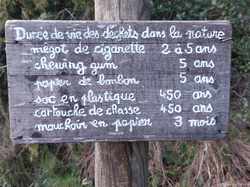 Durée de vie des déchets dans la nature
mégot de cigarette 2 à 5 ans
chewing gum 5 ans
papier de bonbon 5 ans
sac en plastique 450 ans
cartouche de chasse 450 ans
mouchoir en papier 3 mois